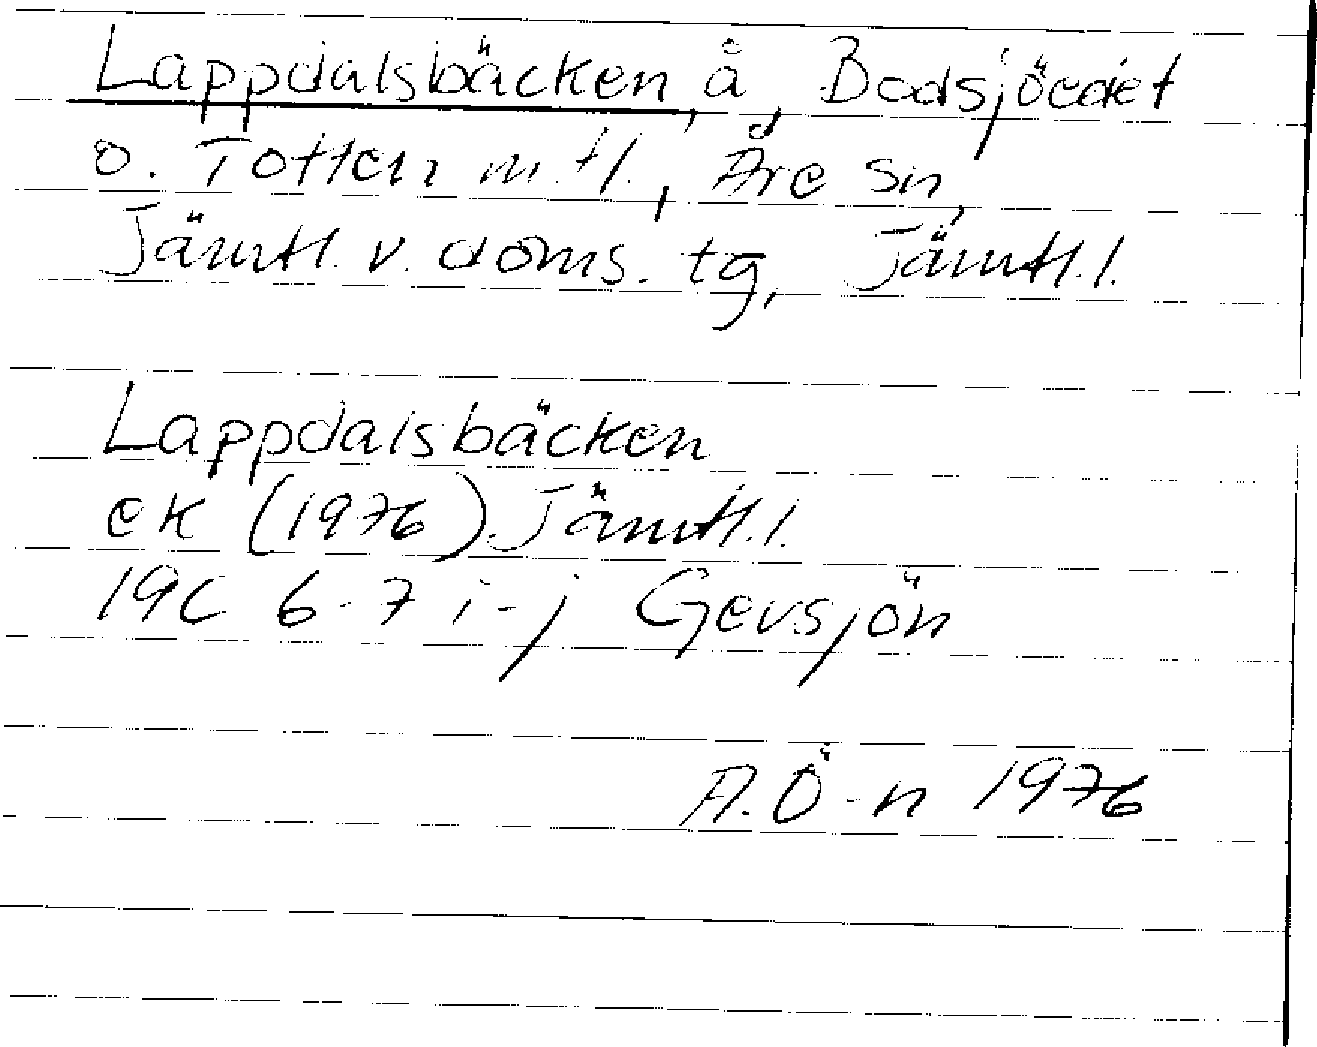 Lappdalsbäcken, å, Bodsjöedet
o. Totten m.fl., Åre sn,
Jämtl. v. doms. tg, Jämtl.l.
Lappdalsbäcken
ek (1976). Jämtl.l.
19C 6-7 i-j Gevsjön
A.Ö-n 1976